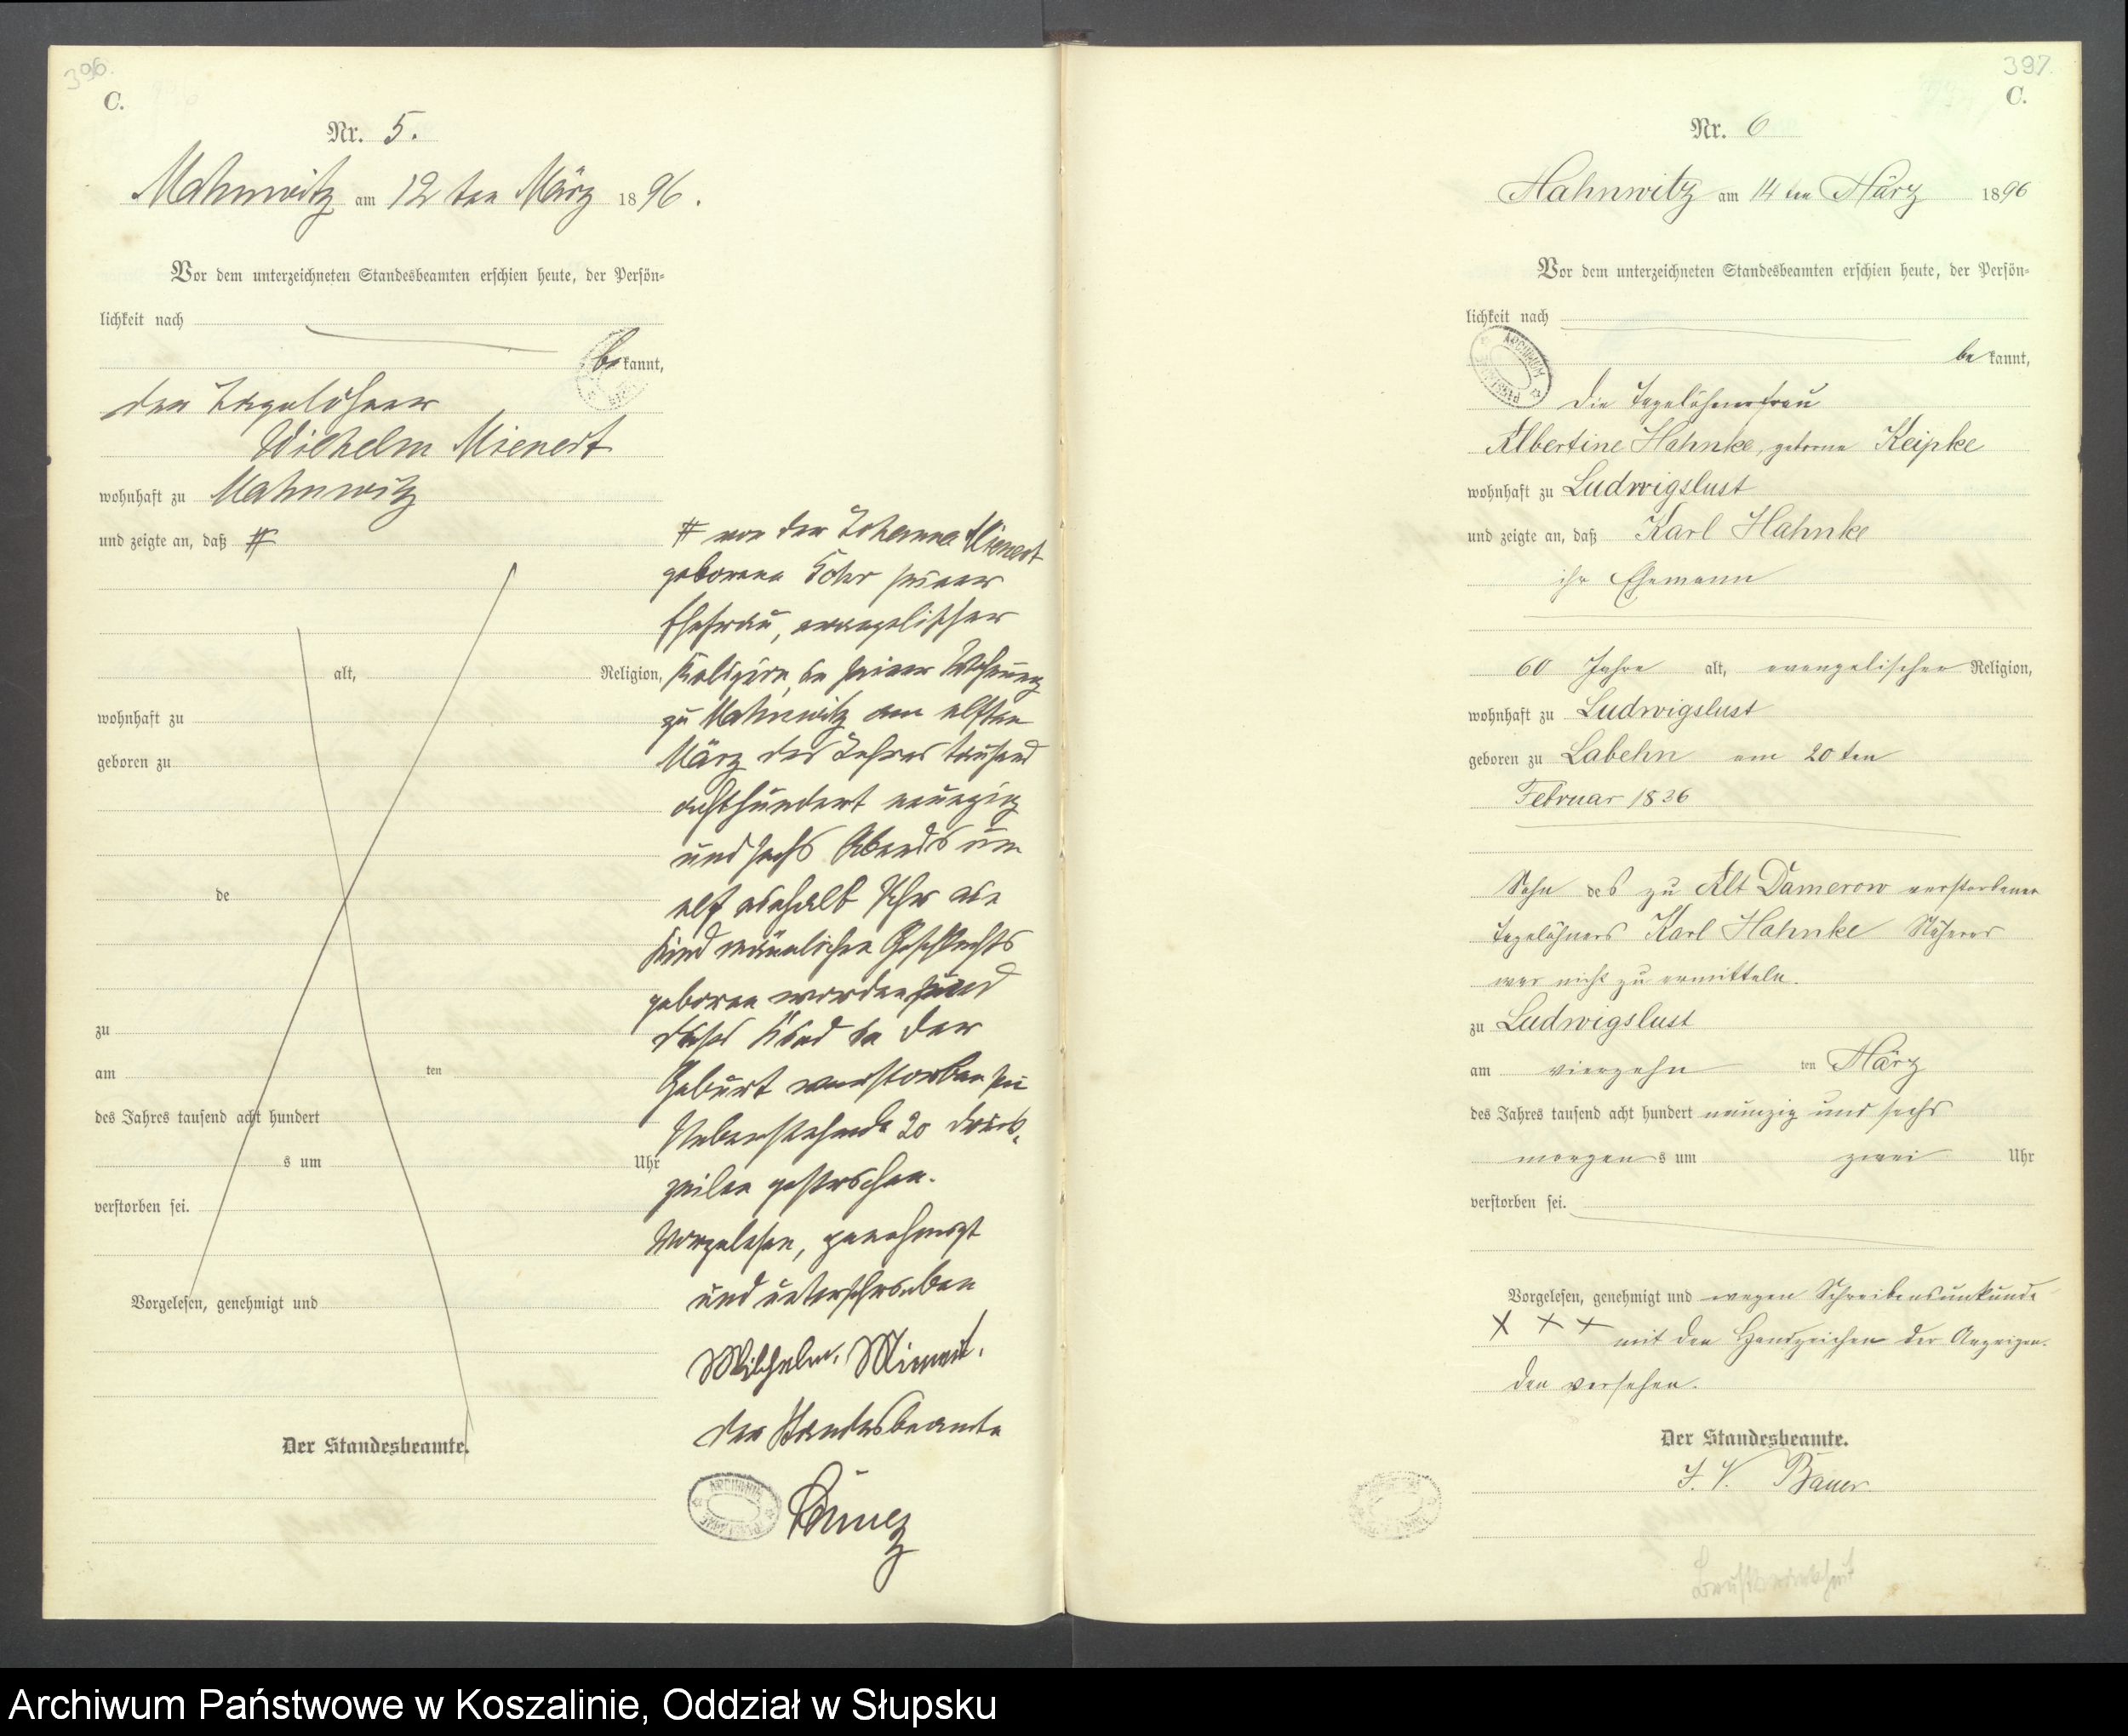 396.
C.
Nr. 5.
Mahnwitz am 12 ten März 1896.
Vor dem unterzeichneten Standesbeamten erschien heute, der Persön-
lichkeit nach
bekannt,
der Tagelöhner
Wilhelm Mienert
wohnhaft zu Mahnwitz
und zeigte an, daß #
alt, Religion,
wohnhaft zu
geboren zu
de
zu
am ten
des Jahres tausend acht hundert
s um Uhr
verstorben sei.
Vorgelesen, genehmigt und
Der Standesbeamte.
# von der Johanna Mienert
geborene seiner
Ehefrau, evangelischer
Religion, in seiner Wohnung
zu Mahnwitz am elften
März des Jahres tausend
achthundert neunzig
und sechs Abends um
elf einhalb Uhr ein
Kind männlichen Geschlechts
geboren worden und
dieses Kind in der
Geburt verstorben sei
20 Druck-
zeilen gestrichen.
Vorgelesen, genehmigt
und unterschrieben
Wilhelm Mienert.
Der Standesbeamte
397.
C.
Nr. 6
Mahnwitz am 14 ten März 1896
Vor dem unterzeichneten Standesbeamten erschien heute, der Persön-
lichkeit nach
be kannt,
die Tagelöhnerfrau
Albertine Hahnke, geborne Keipke
wohnhaft zu Ludwigslust
und zeigte an, daß Karl Hahnke
ihr Ehemann
60 Jahre alt, evangelischer Religion,
wohnhaft zu Ludwigslust
geboren zu Labehn am 20 ten
Februar 1836
Sohn des zu Alt Damerow verstorbenen
Tagelöhners Karl Hahnke Näheres
war nicht zu ermitteln.
zu Ludwigslust
am vierzehn ten März
des Jahres tausend acht hundert neunzig und sechs
morgens um zwei Uhr
verstorben sei.
Vorgelesen, genehmigt und wegen Schreibensunkunde
X X X mit den Handzeichen der Anzeigen-
den versehen.
Der Standesbeamte.
I. V. Bauer
Archiwum Państwowe w Koszalinie, Oddział w Słupsku